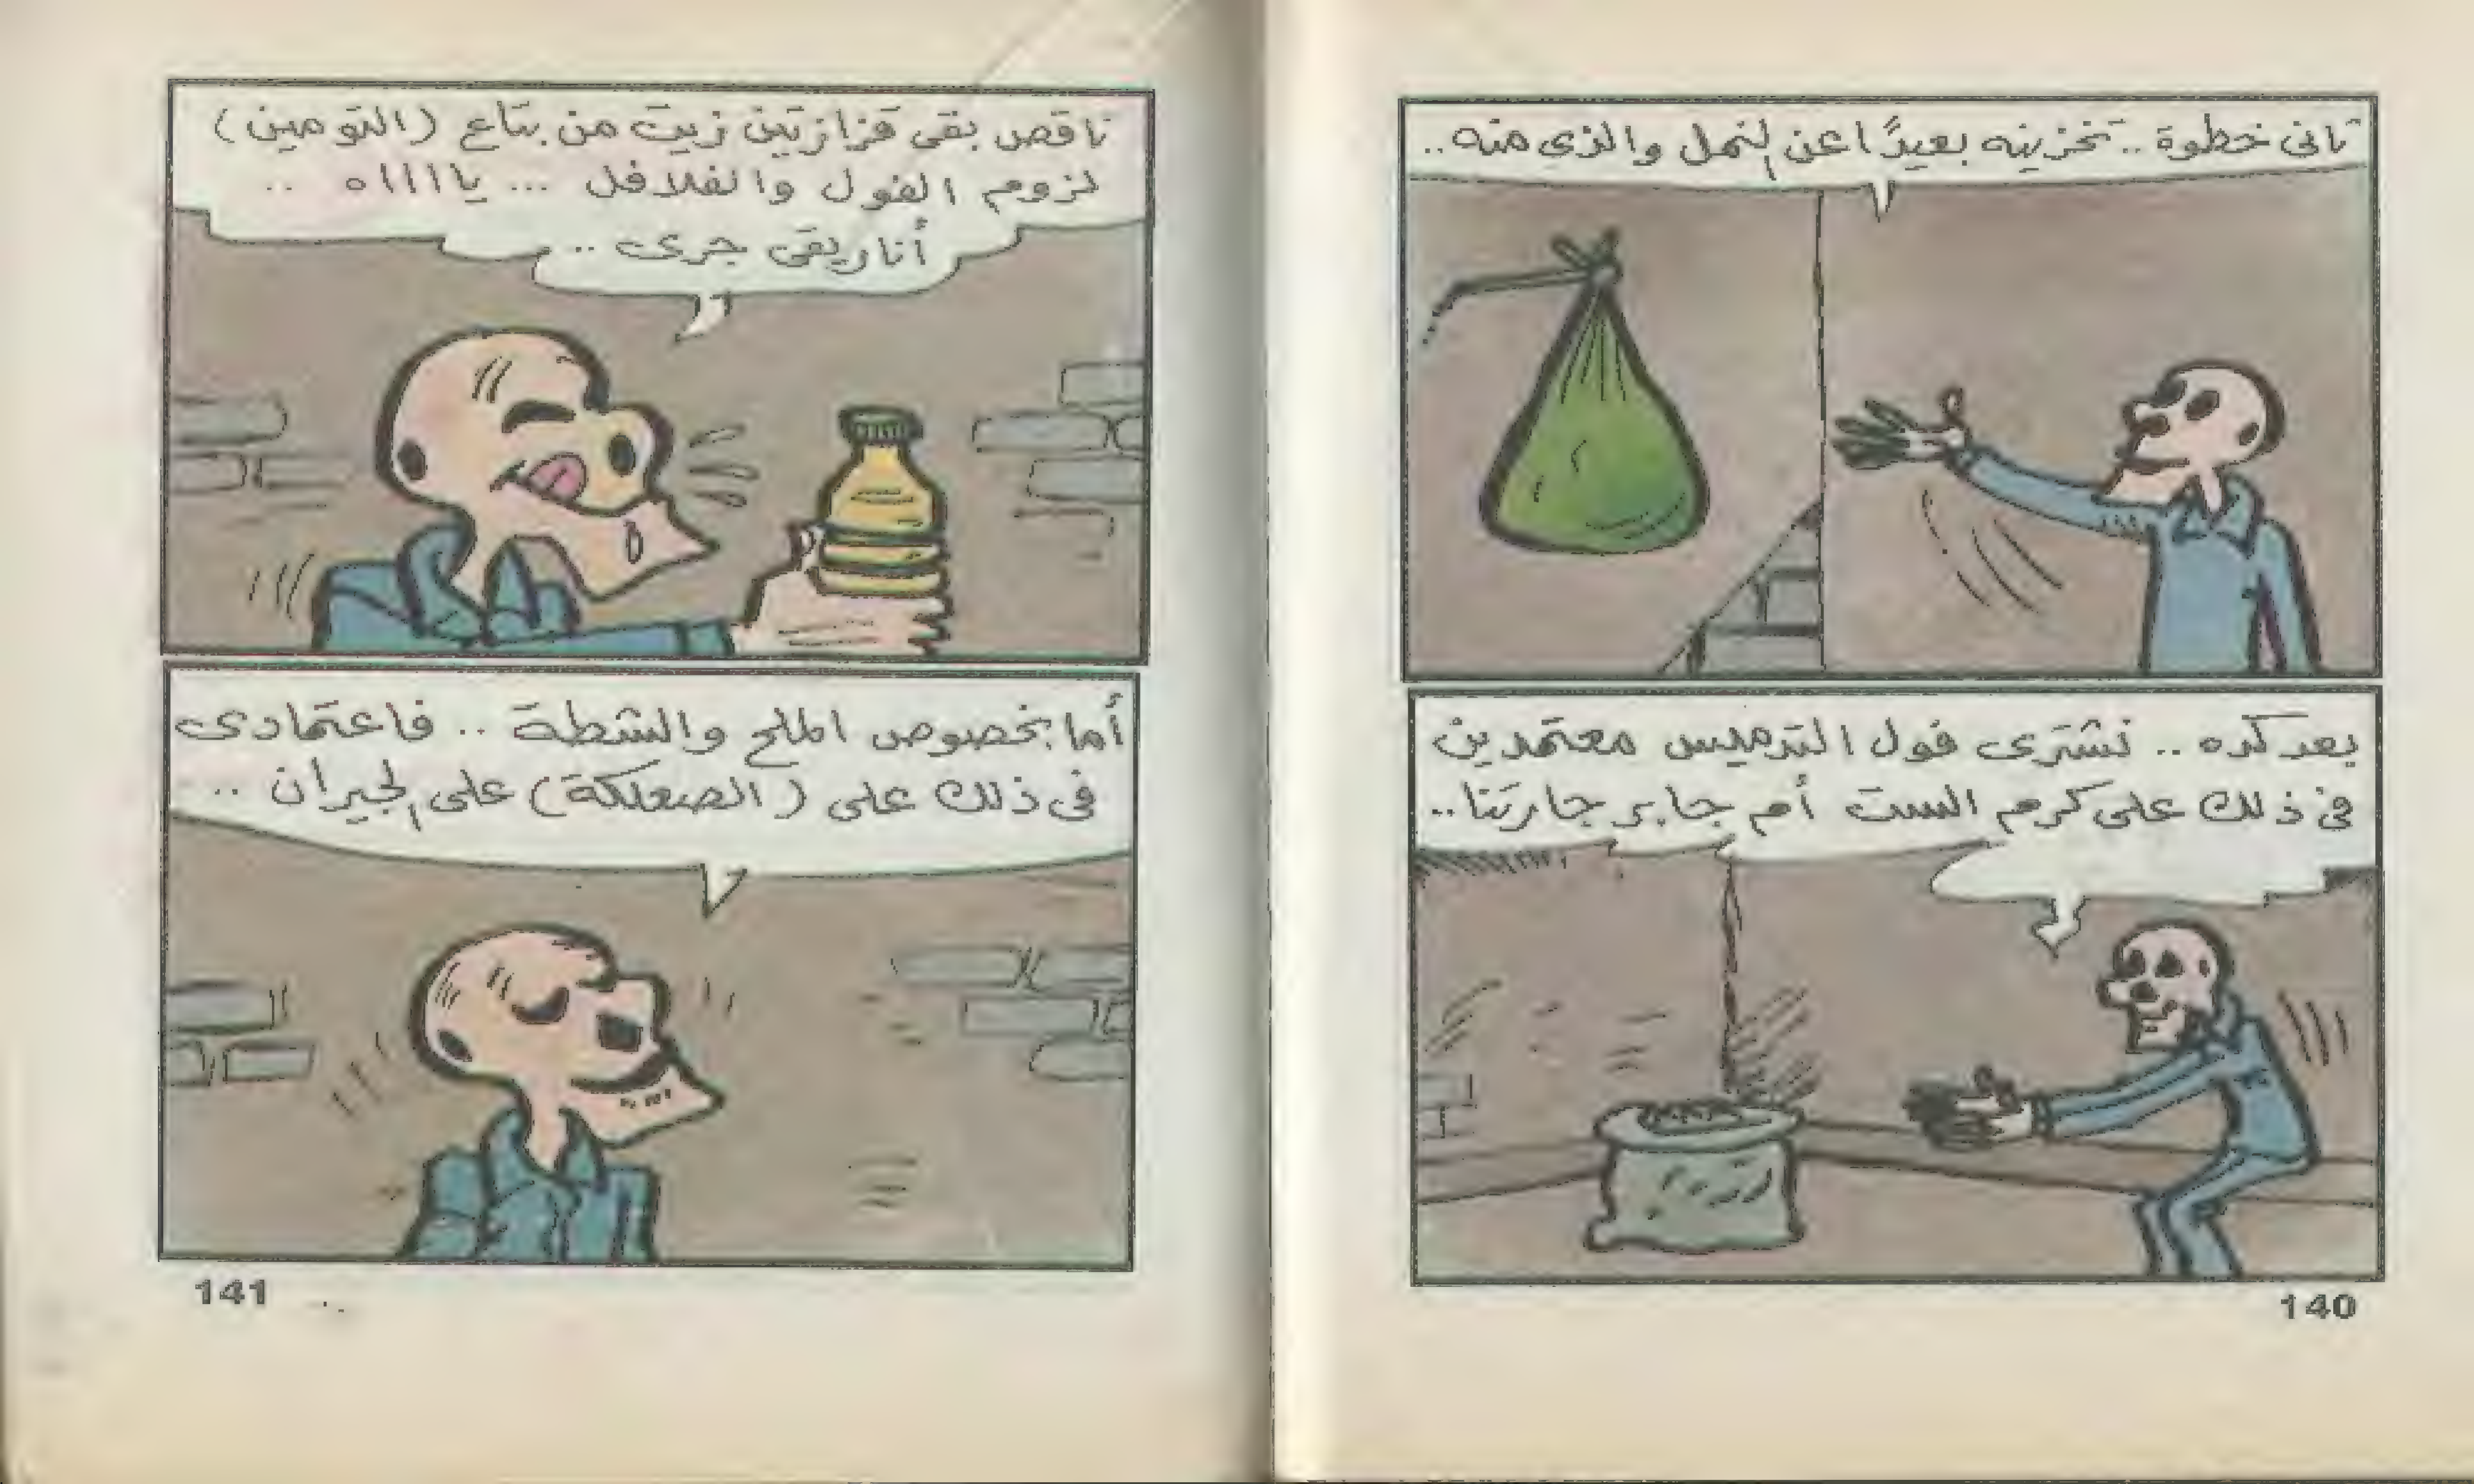 تانى خطوة .. تخزينه بعيدًا عن النمل والذى منه ..
بعد كده .. نشترى فول التدميس معتمدين
فى ذلك على كرم الست أم جابر جارتنا ..
140
ناقص بقى قزازتين زيت من بتاع (التومين)
لزوم الفول والفلافل ... يااااه ..
أنا ريقى جرى ..
أما بخصوص الملح والشطة .. فاعتمادى
فى ذلك على (الصعلكة) على الجيران ..
141